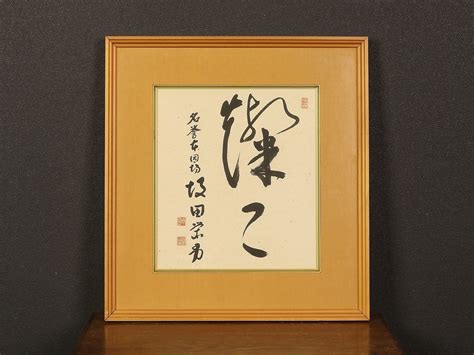 燦々
名誉本因坊 坂田栄男